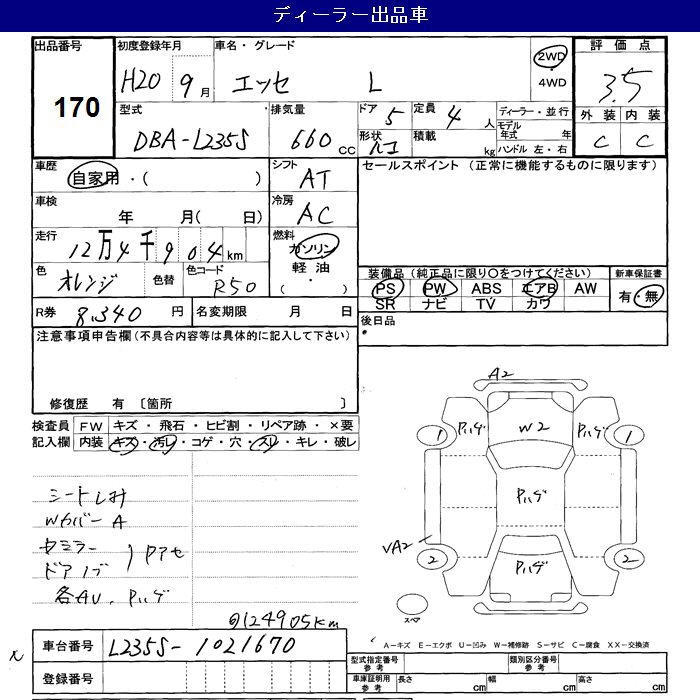 ディーラー出品車
出品番号 初度登録年月 車名・グレード 評価点
170
H20 9月 エッセ L 2WD 4WD 3.5
型式 排気量 ドア 5 定員 4人 ディーラー・並行 外装 内装
DBA-L235S 660cc 形状 積載 kg モデル年式 年 ハンドル 左・右 C C
車歴 自家用・( ) シフト AT セールスポイント (正常に機能するものに限ります)
車検 年 月( 日) 冷房 AC
走行 12万4千904km 燃料 ガソリン 軽油 ・( )
色 オレンジ 色替 色コード R50
装備品(純正品に限り○をつけてください) 新車保証書
PS PW ABS エアB AW 有・無
SR ナビ TV カワ
R券 8,340円 名変期限 月 日 後日品
注意事項申告欄(不具合内容等は具体的に記入して下さい)
修復歴 有 〔箇所 〕
検査員記入欄 FW キズ・飛石・ヒビ割・リペア跡・×要
内装 キズ・汚レ・コゲ・穴・スリ・キレ・破レ
シートしみ
WカバーA
ドアノブ
各AU、Pハゲ
124905km
A2
1 Pハゲ W2 Pハゲ 1
Pハゲ
VA2
2 Pハゲ 2
スペア
A-キズ E-エクボ U-凹み W-補修跡 S-サビ C-腐食 XX-交換済
車台番号 L235S-1021670
登録番号
型式指定番号 参考 類別区分番号 参考
車庫証明用 参考 長さ cm 幅 cm 高さ cm